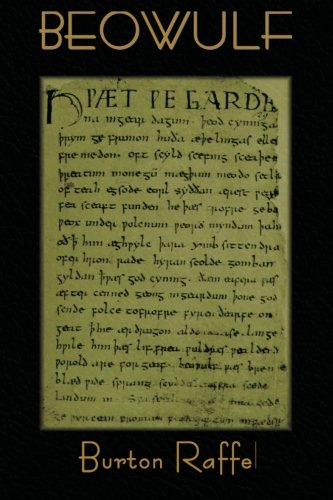 BEOWULF
HǷÆT ǷE GARDE
na ingear dagum. þeod cyninga
þrym ge frunon huða æþelingas elle
fre medon. oft scyld scefing sceaþe
þreatum monegū mægþum meodo setla
of teah egsode eorl syððan ærest ƿear
fea sceaft funden he þæs frofre geba
ƿeox under ƿolcnum ƿeorð myndum þah
oð þ him æghƿylc þara ymb sittendra
ofer hron rade hyran scolde gomban
gyldan þ ƿæs god cyning. ðæm eafera ƿæs
æfter cenned geong ingeardum þone god
sende folce tofrofre fyren ðearfe on
geat þ hie ær drugon aldor ase. lange
hƿile him þæs lif frea ƿuldres ƿealdend
ƿorold are for geaf. beoƿulf ƿæs breme
blæd ƿide sprang scyldes eafera scede
landum in. gode
ge ƿyrcean fromum
Burton Raffel